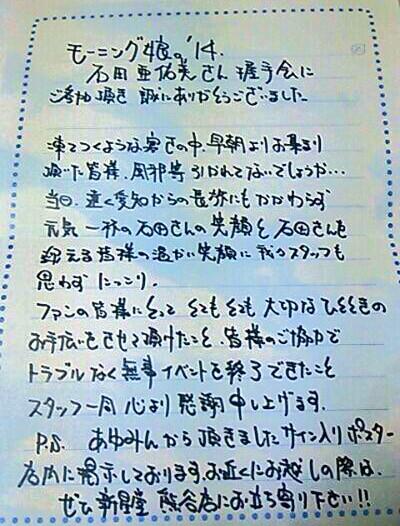 モーニング娘。'14.
石田亜佑美さん握手会に
ご参加頂き誠にありがとうございました
凍てつくような寒さの中、早朝よりお集まり
頂いた皆様、風邪等引かれてないでしょうか…
当日、遠く愛知からの長旅にもかかわらず
元気一杯の石田さんの笑顔と石田さんを
迎える皆様の温かい笑顔に我々スタッフも
思わずにっこり。
ファンの皆様にとって とても とても 大切なひとときの
お手伝いをさせて頂けたこと、皆様のご協力で
トラブルなく無事イベントを終了できたこと
スタッフ一同 心より感謝申し上げます。
P.S. あゆみんから頂きましたサイン入りポスター
店内に掲示しております。お近くにお越しの際は、
ぜひ新星堂 熊谷店にお立ち寄り下さい!!